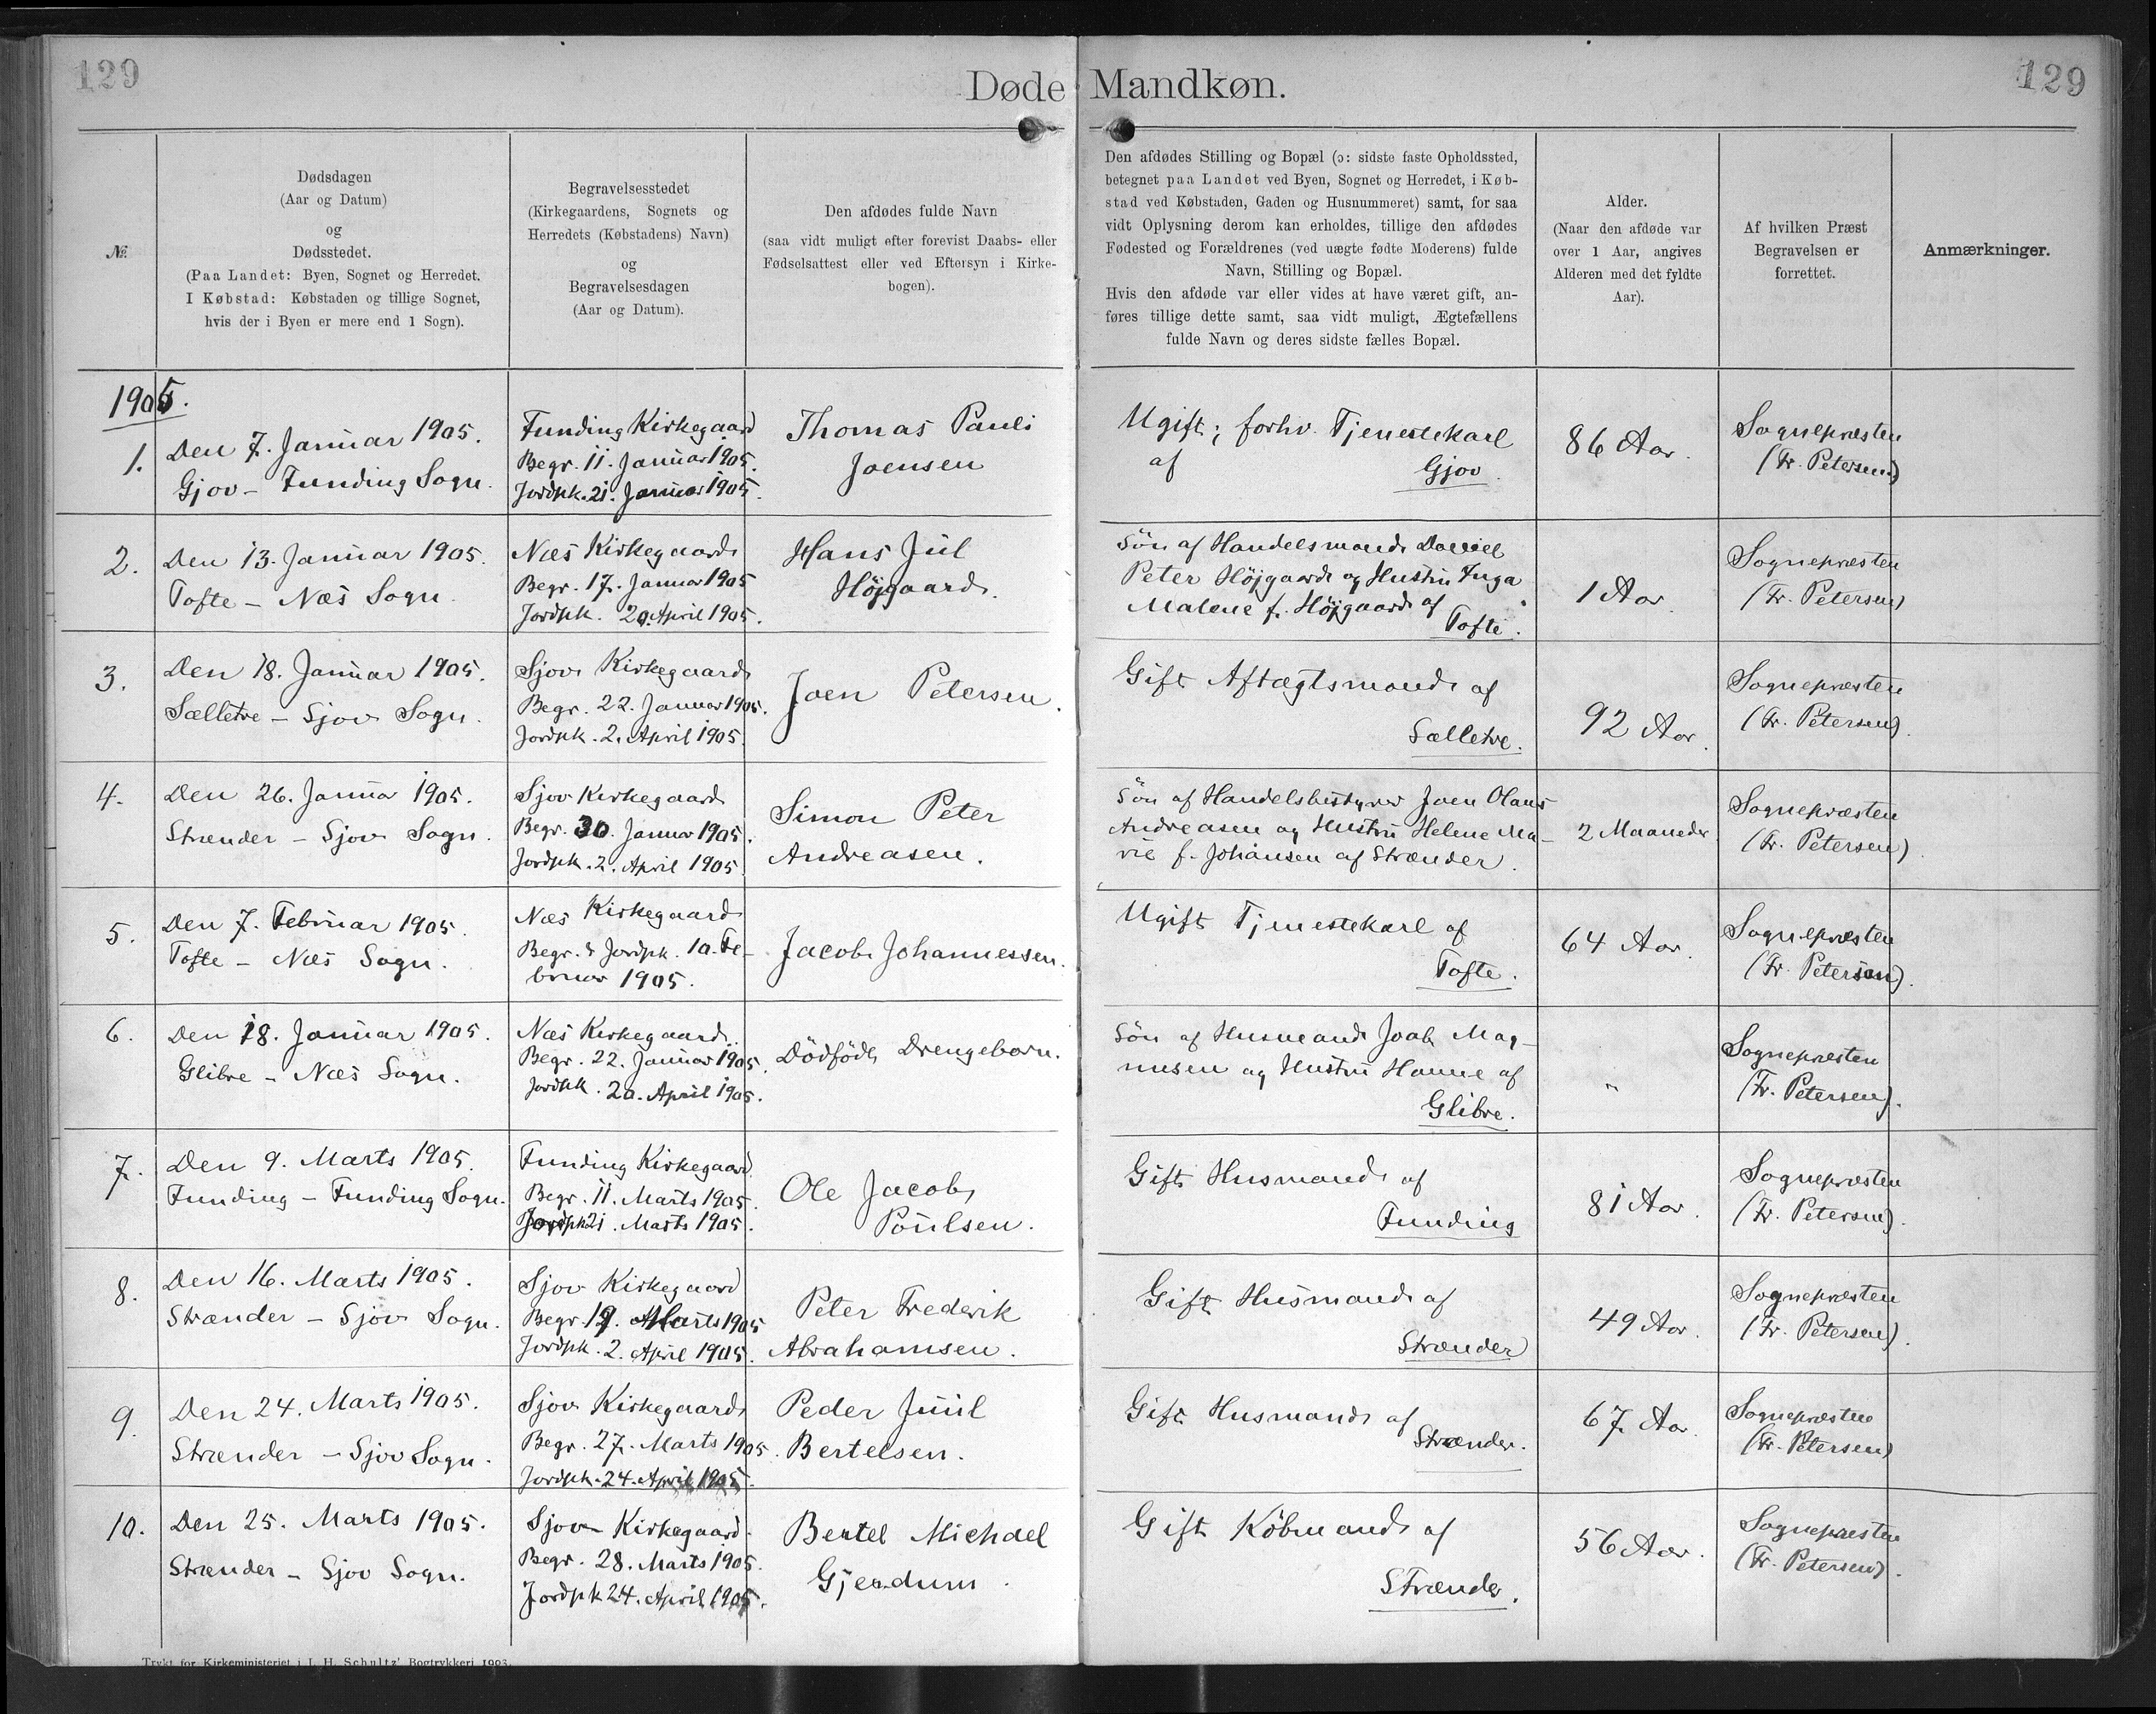 129
Døde Mandkøn.
129
№
Dødsdagen
(Aar og Datum)
og
Dødsstedet.
(Paa Landet: Byen, Sognet og Herredet.
I Købstad: Købstaden og tillige Sognet,
hvis der i Byen er mere end 1 Sogn).
Begravelsesstedet
(Kirkegaardens, Sognets og
Herredets (Købstadens) Navn)
og
Begravelsesdagen
(Aar og Datum).
Den afdødes fulde Navn
(saa vidt muligt efter forevist Daabs- eller
Fødselsattest eller ved Eftersyn i Kirke-
bogen).
Den afdødes Stilling og Bopæl (ɔ: sidste faste Opholdssted,
betegnet paa Landet ved Byen, Sognet og Herredet, i Køb-
stad ved Købstaden, Gaden og Husnummeret) samt, for saa
vidt Oplysning derom kan erholdes, tillige den afdødes
Fødested og Forældrenes (ved uægte fødte Moderens) fulde
Navn, Stilling og Bopæl.
Hvis den afdøde var eller vides at have været gift, an-
føres tillige dette samt, saa vidt muligt, Ægtefællens
fulde Navn og deres sidste fælles Bopæl.
Alder.
(Naar den afdøde var
over 1 Aar, angives
Alderen med det fyldte
Aar).
Af hvilken Præst
Begravelsen er
forrettet.
Anmærkninger.
1905.
1.
Den 7. Januar 1905.
Gjov - Funding Sogn.
Funding Kirkegaard
Begr. 11. Januar 1905.
Jordpk. 21. Januar 1905.
Thomas Pauli
Joensen
Ugift; forhv. Tjenestekarl
af
Gjov.
86 Aar.
Sognepræsten
(Fr. Petersen)
2.
Den 13. Januar 1905.
Tofte - Næs Sogn.
Næs Kirkegaard
Begr. 17. Januar 1905
Jordpk. 20. April 1905.
Hans Júl
Höjgaard.
Sön af Handelsmand Daniel
Peter Höjgaard og Hustru Inga
Malene f. Höjgaard af
Tofte.
1 Aar.
Sognepræsten
(Fr. Petersen)
3.
Den 18. Januar 1905.
Sælletre - Sjov Sogn.
Sjov Kirkegaard
Begr. 22. Januar 1905.
Jordpk. 2. April 1905.
Joen Petersen.
Gift Aftægtsmand af
Sælletre.
92 Aar.
Sognepræsten
(Fr. Petersen).
4.
Den 26. Januar 1905.
Strænder - Sjov Sogn.
Sjov Kirkegaard
Begr. 30. Januar 1905.
Jordpk. 2. April 1905
Simon Peter
Andreasen.
Sön af Handelsbestyrer Joen Olaus
Andreasen og Hustru Helene Ma-
rie f. Johansen af Strænder.
2 Maaneder
Sognepræsten
(Fr. Petersen).
5.
Den 7. Februar 1905.
Tofte - Næs Sogn.
Næs Kirkegaard
Begr. & Jordpk. 10. Fe-
bruar 1905.
Jacob Johannessen.
Ugift Tjenestekarl af
Tofte.
64 Aar.
Sognepræsten
(Fr. Petersen).
6.
Den 18. Januar 1905.
Glibre - Næs Sogn.
Næs Kirkegaard.
Begr. 22. Januar 1905.
Jordpk. 20. April 1905.
Dödfödt Drengebarn.
Sön af Husmand Joab Mag-
nusen og Hustru Hanne af
Glibre.
"
Sognepræsten
(Fr. Petersen).
7.
Den 9. Marts 1905.
Funding - Funding Sogn.
Funding Kirkegaard.
Begr. 11. Marts 1905.
Jordpk 21. Marts 1905.
Ole Jacob
Poulsen.
Gift Husmand af
Funding
81 Aar.
Sognepræsten
(Fr. Petersen).
8.
Den 16. Marts 1905.
Strænder - Sjov Sogn.
Sjov Kirkegaard
Begr. 19. Marts 1905
Jordpk. 2. April 1905.
Peter Frederik
Abrahamsen.
Gift Husmand af
Strænder
49 Aar.
Sognepræsten
(Fr. Petersen).
9.
Den 24. Marts 1905.
Strænder - Sjov Sogn.
Sjov Kirkegaard
Begr. 27. Marts 1905.
Jordpk. 24. April 1905.
Peder Júúl
Bertelsen.
Gift Husmand af
Strænder.
67 Aar.
Sognepræsten
(Fr. Petersen)
10.
Den 25. Marts 1905.
Strænder - Sjov Sogn.
Sjov Kirkegaard.
Begr. 28. Marts 1905.
Jordpk 24. April 1905.
Bertel Michael
Gjerdum.
Gift Köbmand af
Strænder.
56 Aar.
Sognepræsten
(Fr. Petersen).
Trykt for Kirkeministeriet i J. H. Schultz' Bogtrykkeri 1903.